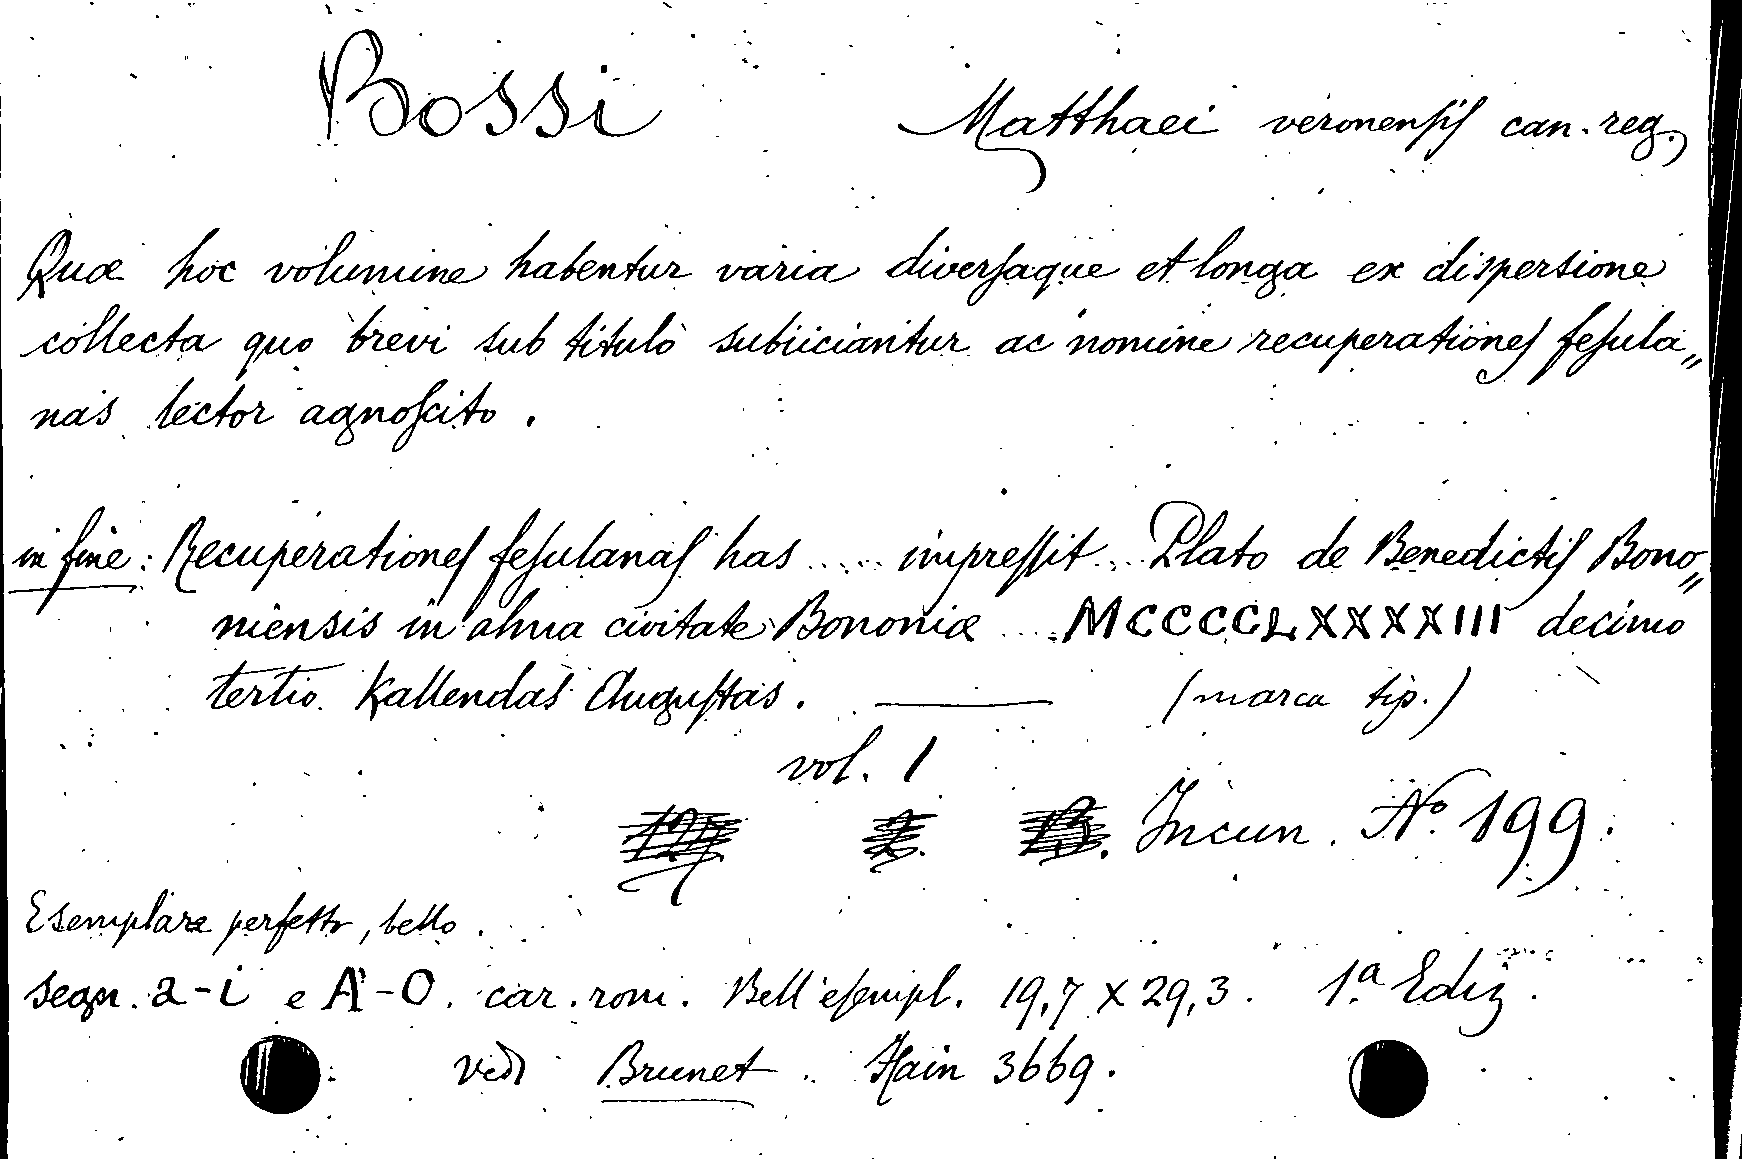 Bossi Matthaei veronensis can. reg.
Quæ hoc volumine habentur varia diversaque et longa ex dispersione
collecta quo brevi sub titulo subiiciantur ac nomine recuperationes fesula„
nas lector agnoscito.
in fine: Recuperationes fesulanas has .... impressit... Plato de Benedictis Bono„
niensis in alma civitate Bononiæ .... MCCCCLXXXXIII decimo
tertio Kallendas Augustas. —— (marca tip.)
vol. 1
Incun. No. 199.
Esemplare perfetto, bello.
segn. a-i e A-O. car. rom. Bell'esempl. 19,7 x 29,3. 1.a Ediz.
vedi Brunet. Hain 3669.